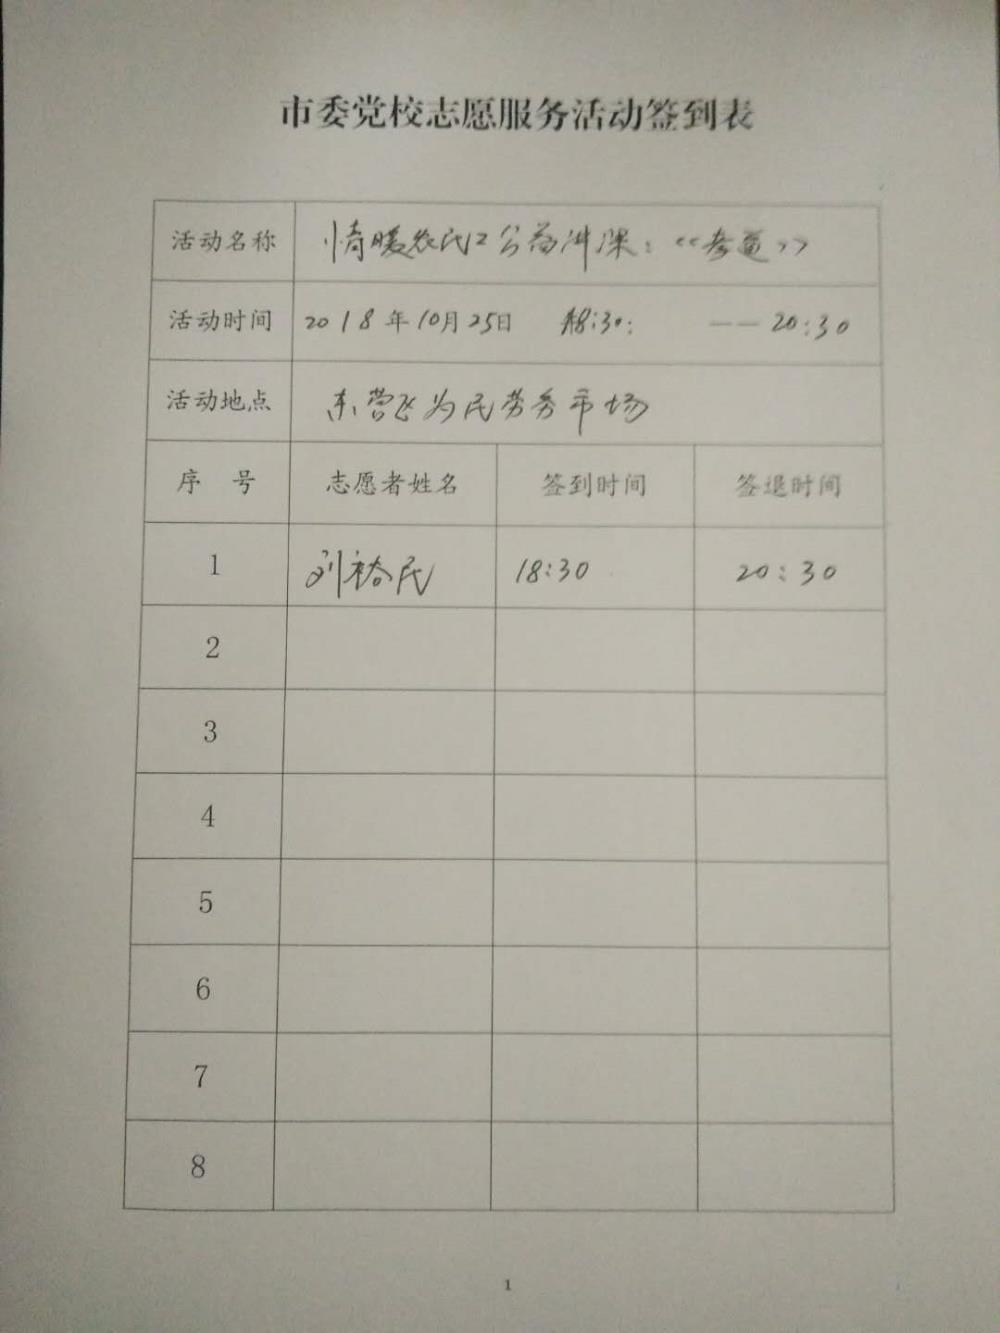 市委党校志愿服务活动签到表
活动名称 情暖农民工公益讲课:《孝道》
活动时间 2018年10月25日 18:30: —— 20:30
活动地点 东营飞为民劳务市场
序 号 志愿者姓名 签到时间 签退时间
1 刘裕民 18:30 20:30
2
3
4
5
6
7
8
1